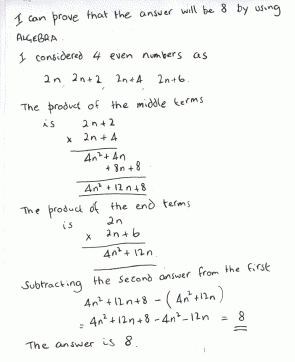 I can prove that the answer will be 8 by using
ALGEBRA.
I considered 4 even numbers as
2n, 2n+2, 2n+4, 2n+6.
The product of the middle terms
is 2n+2
x 2n+4
4n²+4n
+8n+8
4n²+12n+8
The product of the end terms
is 2n
x 2n+6
4n²+12n.
Subtracting the second answer from the first
4n²+12n+8 - (4n²+12n)
= 4n²+12n+8-4n²-12n = 8
The answer is 8.